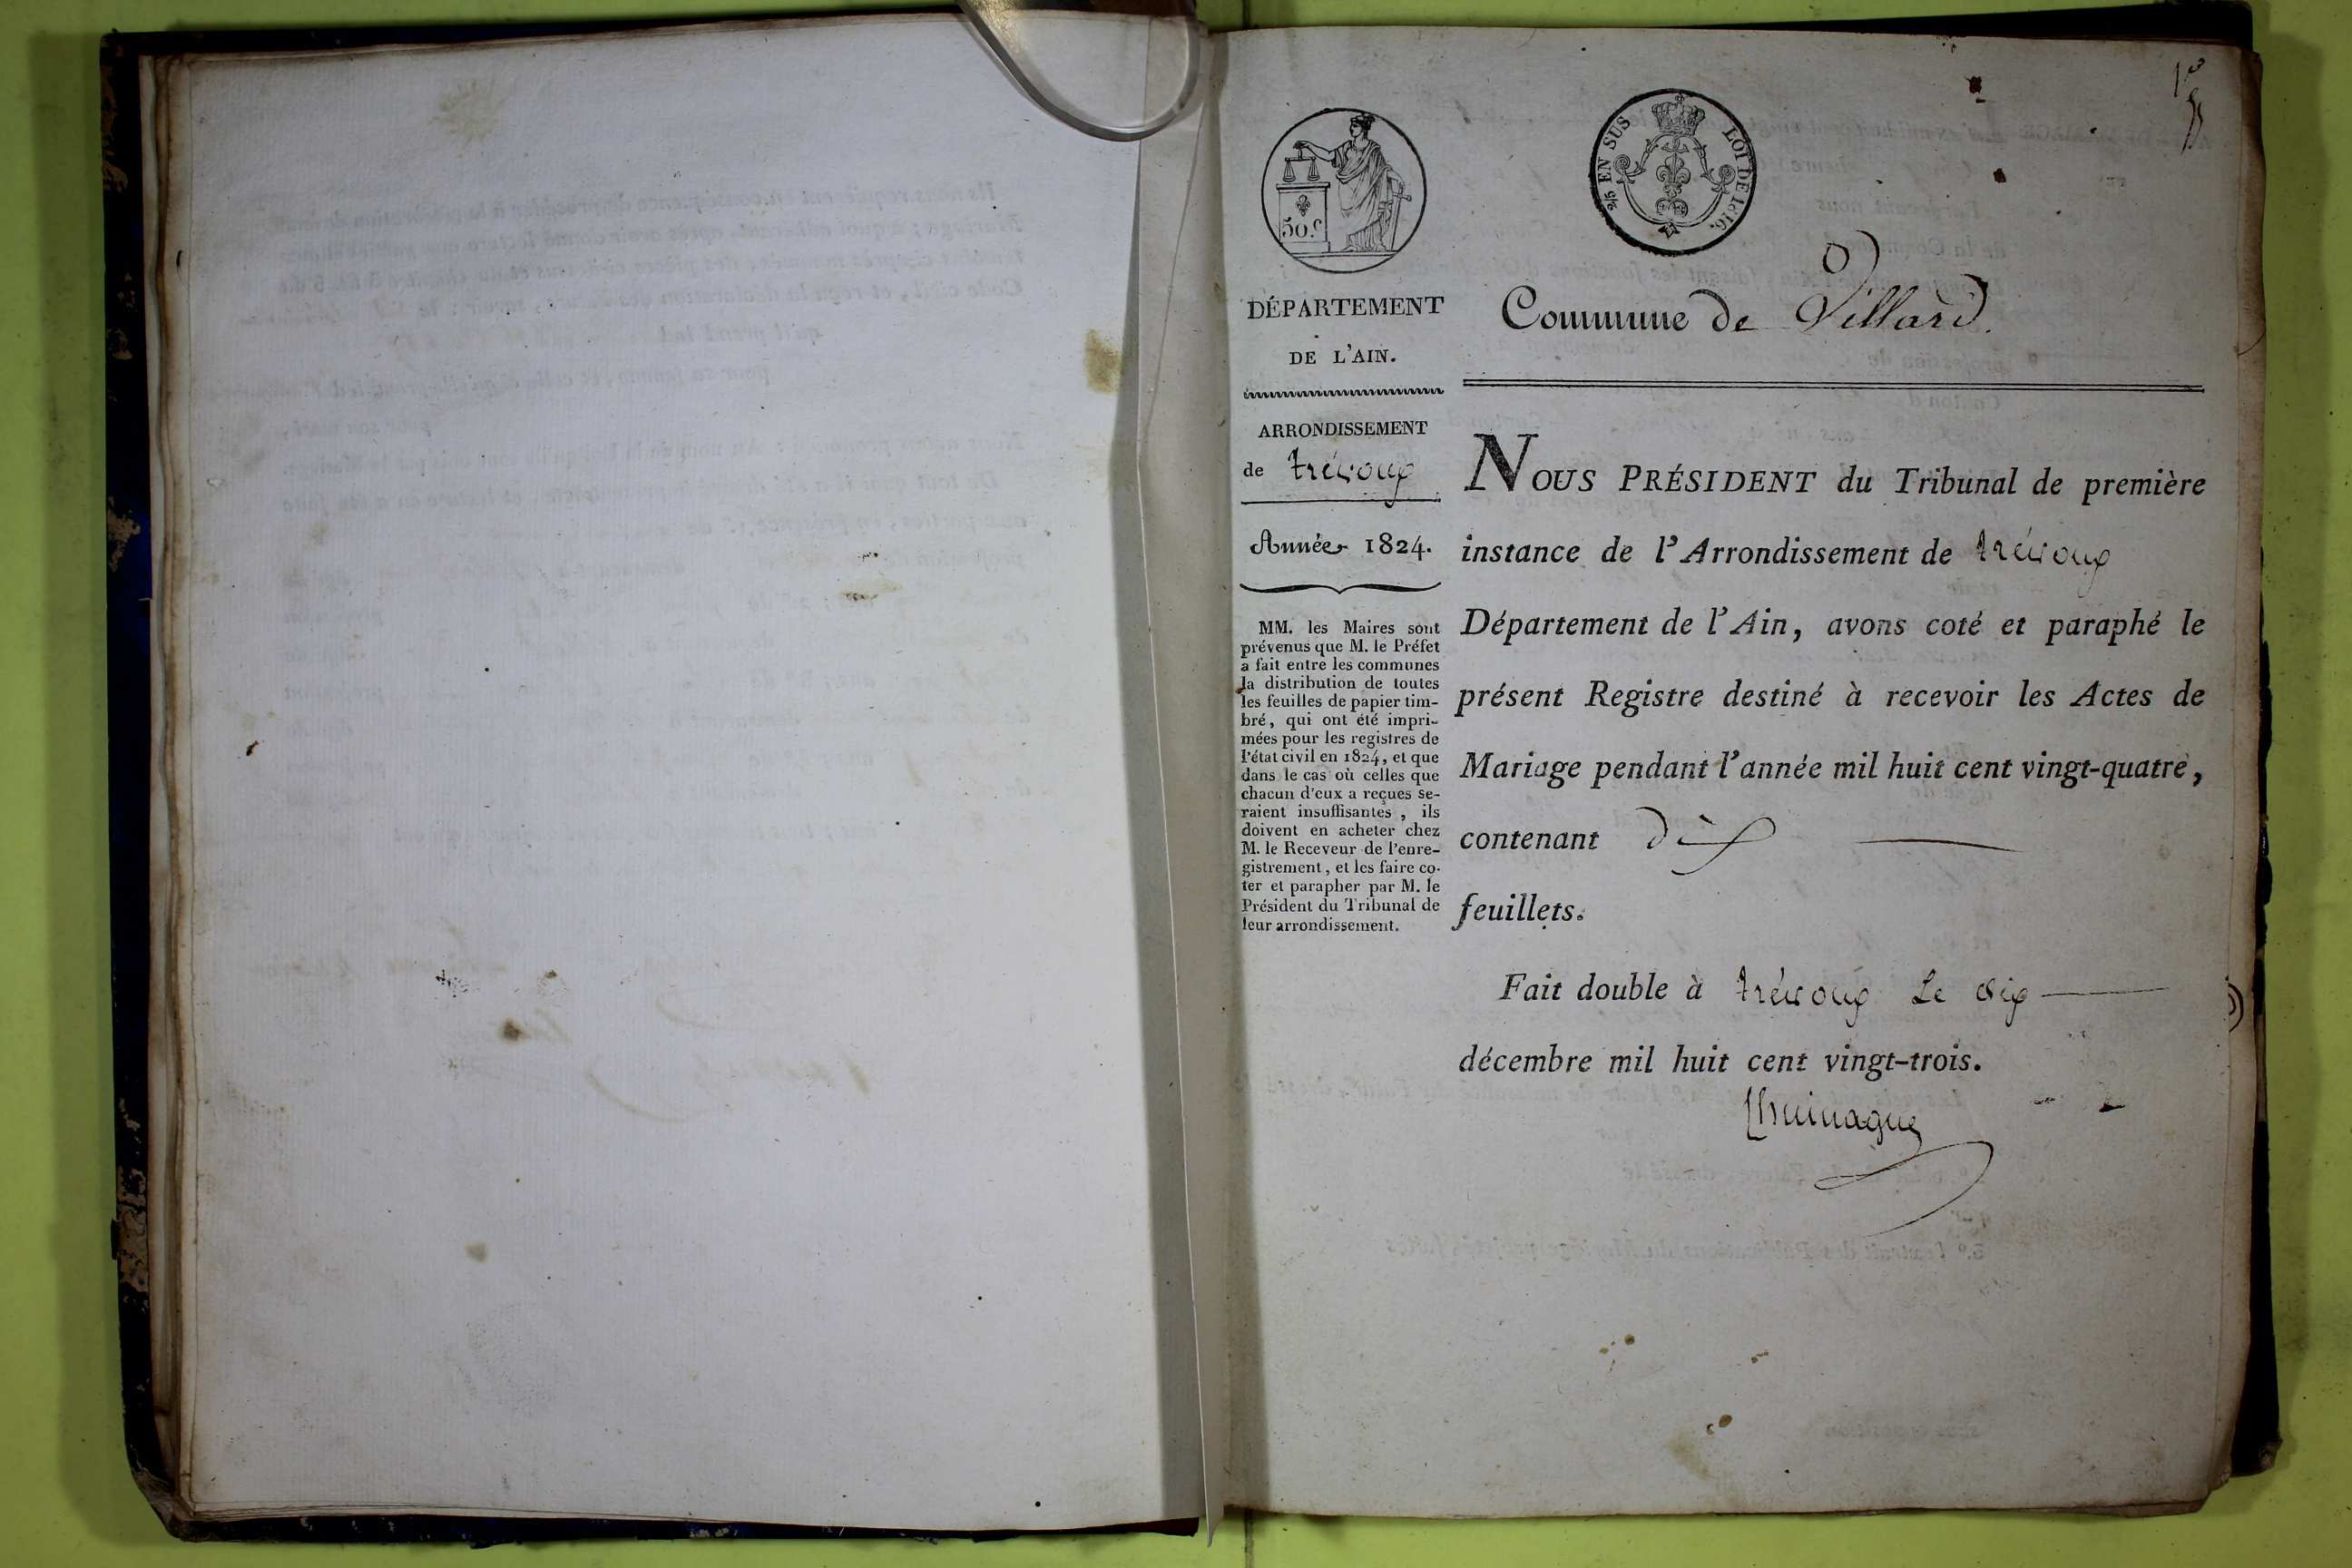 50.c
2/5 EN SUS LOI DE 1816.
DÉPARTEMENT
DE L'AIN.
ARRONDISSEMENT
de trévoux
Année 1824.
MM. les Maires sont
prévenus que M. le Préfet
a fait entre les communes
la distribution de toutes
les feuilles de papier tim-
bré, qui ont été impri-
mées pour les registres de
l'état civil en 1824, et que
dans le cas où celles que
chacun d'eux a reçues se-
raient insuffisantes, ils
doivent en acheter chez
M. le Receveur de l'enre-
gistrement, et les faire co-
ter et parapher par M. le
Président du Tribunal de
leur arrondissement.
Commune de Villard.
NOUS PRÉSIDENT du Tribunal de première
instance de l'Arrondissement de trévoux
Département de l'Ain, avons coté et paraphé le
présent Registre destiné à recevoir les Actes de
Mariage pendant l'année mil huit cent vingt-quatre,
contenant dix
feuillets.
Fait double à trévoux Le dix
décembre mil huit cent vingt-trois.